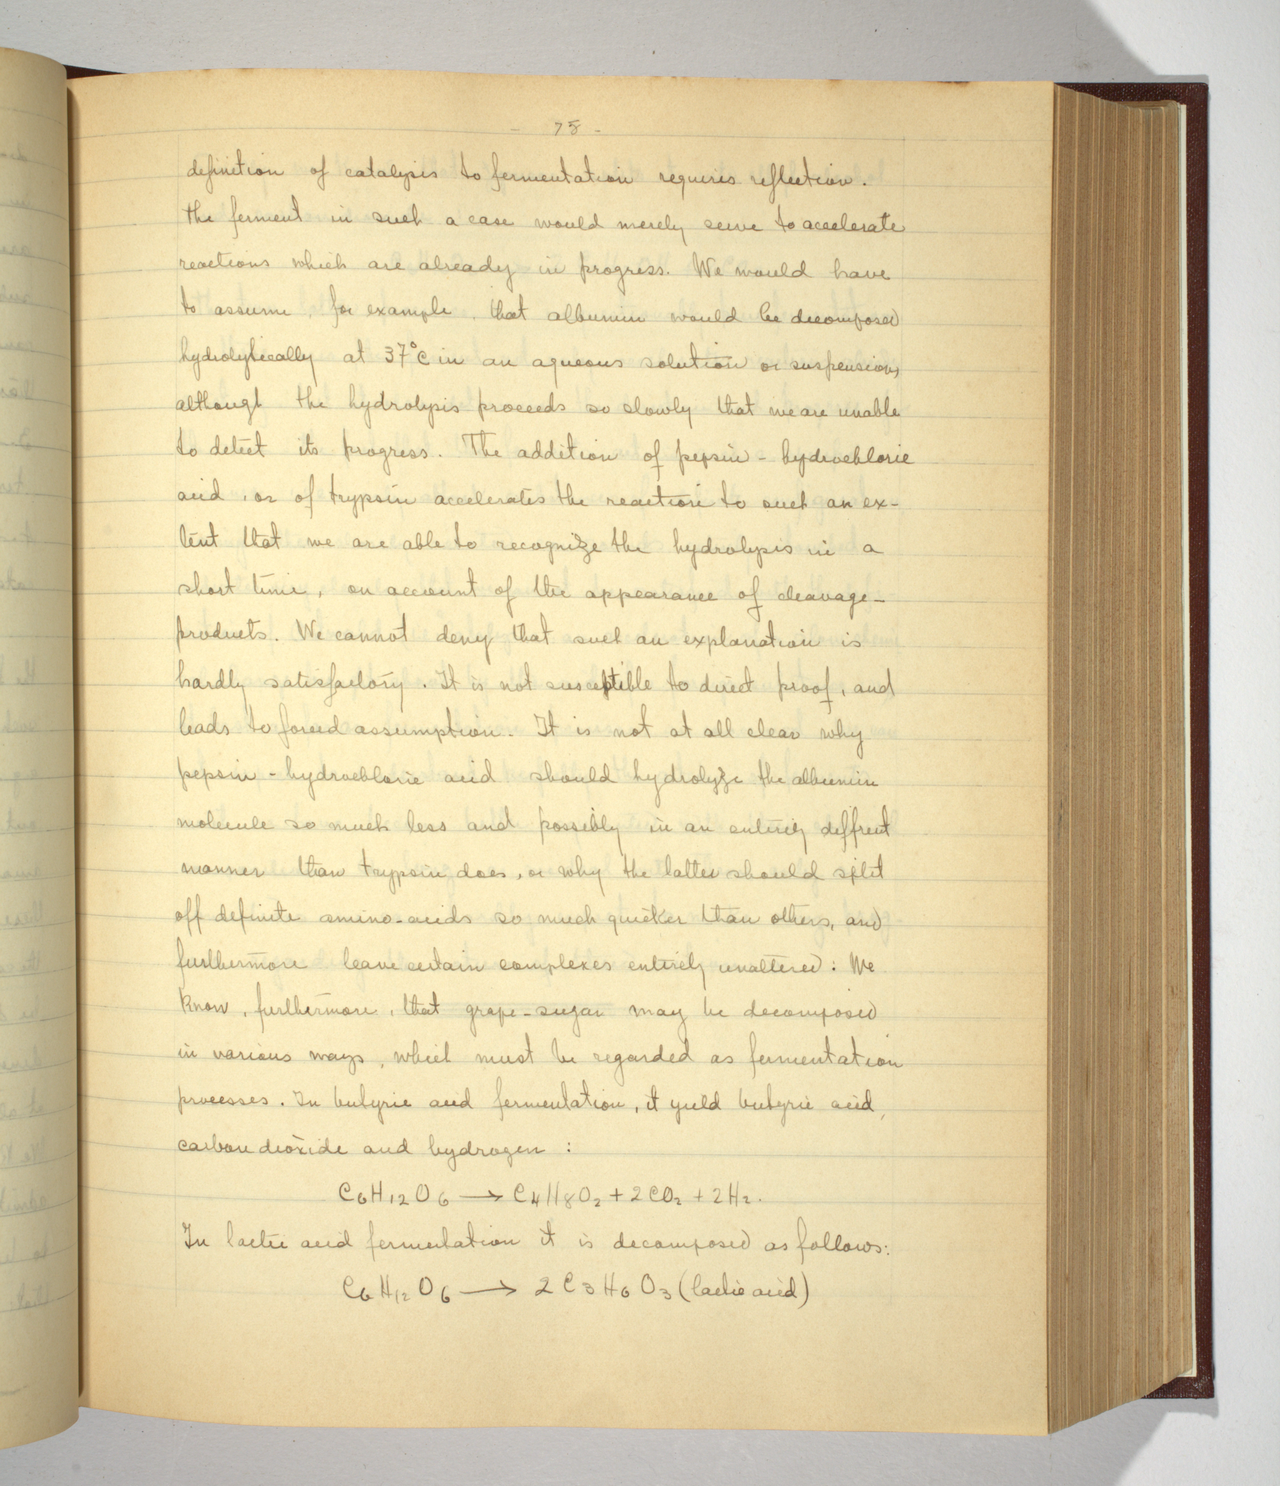 - 75 -
definition of catalysis to fermentation requires reflection.
The ferment in such a case would merely serve to accelerate
reactions which are already in progress. We would have
to assume, for example, that albumin would be decomposed
hydrolytically at 37°C in an aqueous solution or suspension,
although the hydrolysis proceeds so slowly that we are unable
to detect its progress. The addition of pepsin - hydrochloric
acid, or of trypsin accelerates the reaction to such an ex-
tent that we are able to recognize the hydrolysis in a
short time, on account of the appearance of cleavage-
products. We cannot deny that such an explanation is
hardly satisfactory. It is not susceptible to direct proof, and
leads to forced assumption. It is not at all clear why
pepsin - hydrochloric acid should hydrolyze the albumin
molecule so much less and possibly in an entirely diffrent
manner than trypsin does, or why the latter should split
off definite amino-acids so much quicker than others, and
furthermore leave certain complexes entirely unaltered: We
know, furthermore, that grape-sugar may be decomposed
in various ways, which must be regarded as fermentation
processes. In butyric acid fermentation, it yield butyric acid,
carbon dioxide and hydrogen :
C6H12O6 → C4H8O2 + 2CO2 + 2H2.
In lactic acid fermentation it is decomposed as follows:
C6H12O6 → 2C3H6O3 (lactic acid)